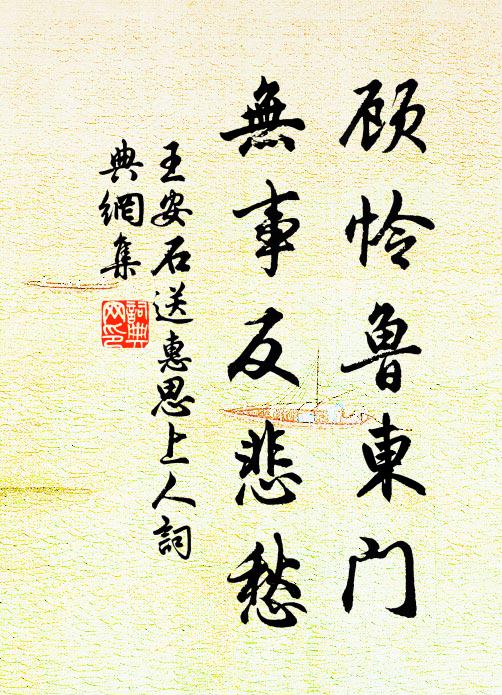 顾怜魯東门
無事反悲愁
王安石送惠思上人詞
典網集
詞典
网印